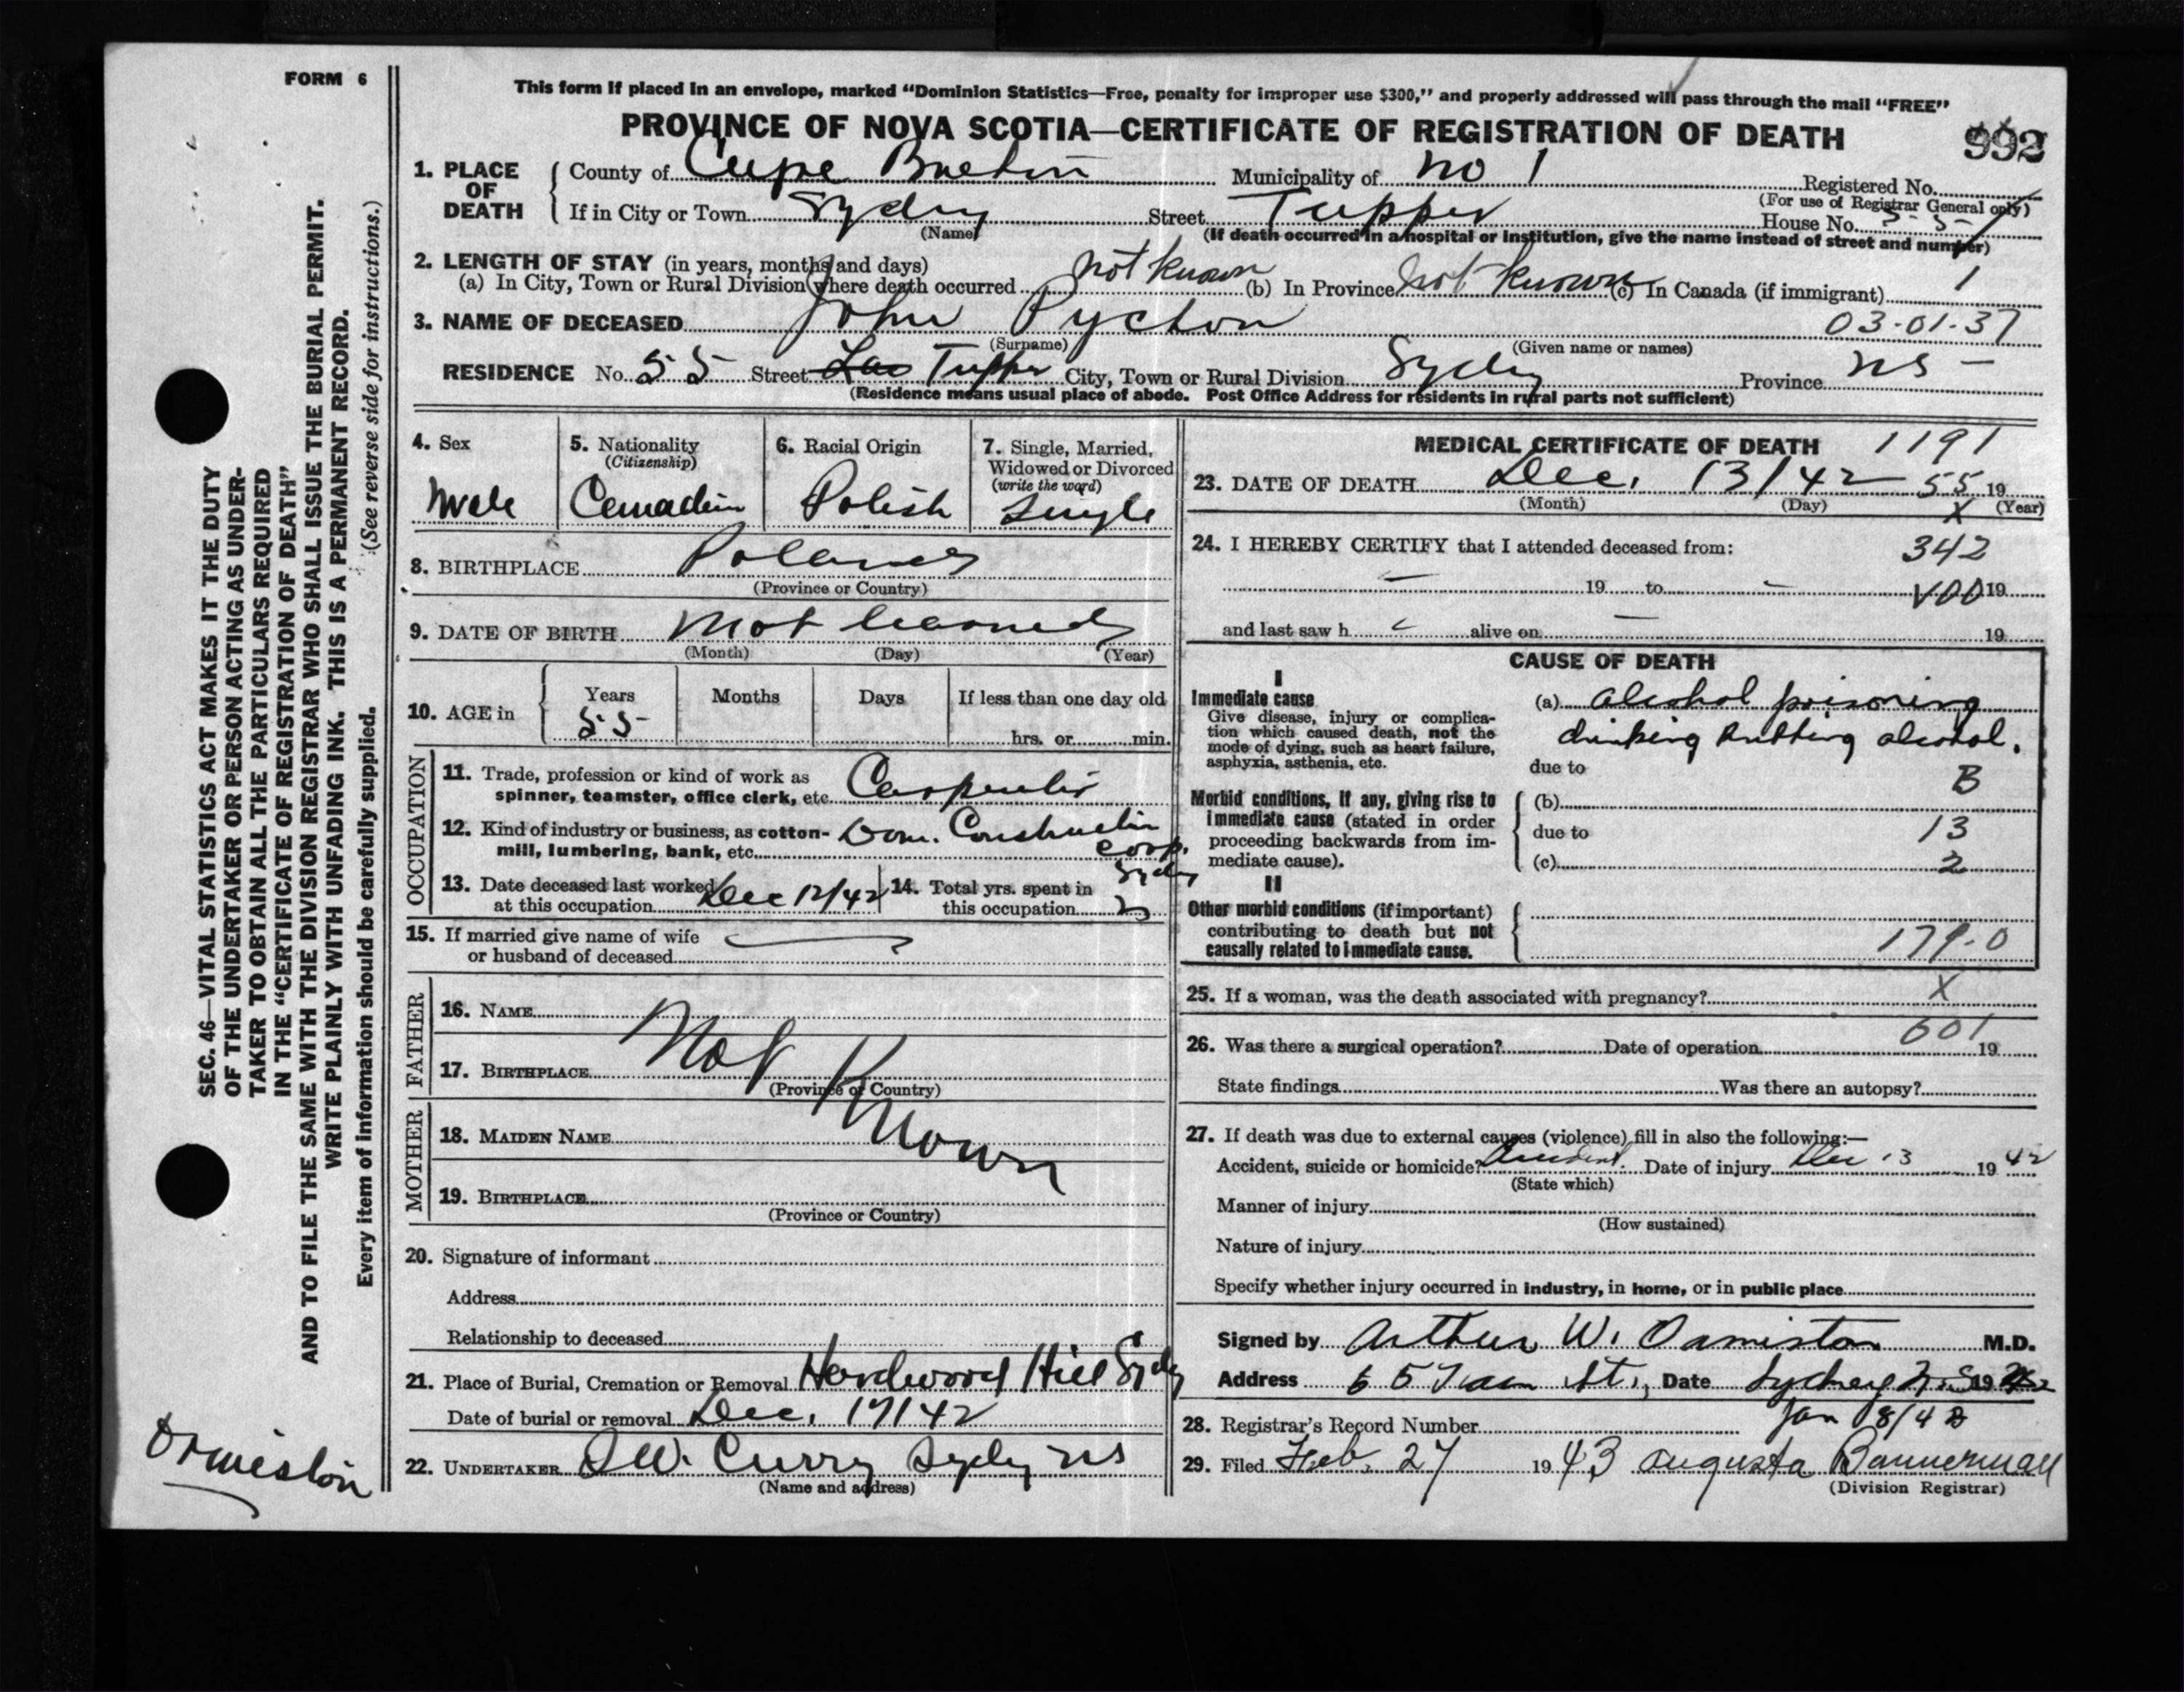 FORM 6
This form if placed in an envelope, marked “Dominion Statistics—Free, penalty for improper use $300,” and properly addressed will pass through the mail “FREE”
PROVINCE OF NOVA SCOTIA—CERTIFICATE OF REGISTRATION OF DEATH
992
1. PLACE OF DEATH
County of Cape Breton Municipality of no 1 Registered No.
(For use of Registrar General only)
If in City or Town Sydny Street Tupper House No. 55
(Name) (If death occurred in a hospital or institution, give the name instead of street and number)
2. LENGTH OF STAY (in years, months and days)
(a) In City, Town or Rural Division where death occurred not known (b) In Province not known (c) In Canada (if immigrant) 1
3. NAME OF DECEASED John Pychon 03-01-37
(Surname) (Given name or names)
RESIDENCE No. 55 Street Tupper City, Town or Rural Division Sydny Province NS
(Residence means usual place of abode. Post Office Address for residents in rural parts not sufficient)
4. Sex Male
5. Nationality (Citizenship) Canadian
6. Racial Origin Polish
7. Single, Married, Widowed or Divorced (write the word) Single
8. BIRTHPLACE Poland
(Province or Country)
9. DATE OF BIRTH Not learned
(Month) (Day) (Year)
10. AGE in Years 55 Months Days If less than one day old
hrs. or min.
OCCUPATION
11. Trade, profession or kind of work as spinner, teamster, office clerk, etc. Carpenter
12. Kind of industry or business, as cotton-mill, lumbering, bank, etc. Dom. Construction Corp. Sydny
13. Date deceased last worked at this occupation Dec 12/42
14. Total yrs. spent in this occupation
15. If married give name of wife or husband of deceased
FATHER
16. NAME
17. BIRTHPLACE
(Province or Country)
Not Known
MOTHER
18. MAIDEN NAME
19. BIRTHPLACE
(Province or Country)
20. Signature of informant
Address
Relationship to deceased
21. Place of Burial, Cremation or Removal Hardwood Hill Sydny
Date of burial or removal Dec. 17/42
22. UNDERTAKER W. Curry Sydny NS
(Name and address)
MEDICAL CERTIFICATE OF DEATH 1191
23. DATE OF DEATH Dec. 13/42 55 19
(Month) (Day) (Year)
X
24. I HEREBY CERTIFY that I attended deceased from:
342
— 19 to — V00 19
and last saw h alive on — 19
CAUSE OF DEATH
I
Immediate cause
Give disease, injury or complication which caused death, not the mode of dying, such as heart failure, asphyxia, asthenia, etc.
(a) alcohol poisoning
drinking rubbing alcohol.
due to
B
Morbid conditions, if any, giving rise to immediate cause (stated in order proceeding backwards from immediate cause).
(b)
due to 13
(c) 2
II
Other morbid conditions (if important) contributing to death but not causally related to immediate cause.
179-0
25. If a woman, was the death associated with pregnancy? X
601
26. Was there a surgical operation? Date of operation 19
State findings Was there an autopsy?
27. If death was due to external causes (violence) fill in also the following:—
Accident, suicide or homicide? Accident. Date of injury Dec 13 1942
(State which)
Manner of injury
(How sustained)
Nature of injury
Specify whether injury occurred in industry, in home, or in public place
Signed by Arthur W. Ormiston M.D.
Address St., Date Sydney N.S. 19
28. Registrar's Record Number Jan 8/43
29. Filed Feb. 27 1943 Augusta Bannerman
(Division Registrar)
SEC. 46—VITAL STATISTICS ACT MAKES IT THE DUTY
OF THE UNDERTAKER OR PERSON ACTING AS UNDER-
TAKER TO OBTAIN ALL THE PARTICULARS REQUIRED
IN THE “CERTIFICATE OF REGISTRATION OF DEATH”
AND TO FILE THE SAME WITH THE DIVISION REGISTRAR WHO SHALL ISSUE THE BURIAL PERMIT.
WRITE PLAINLY WITH UNFADING INK. THIS IS A PERMANENT RECORD.
Every item of information should be carefully supplied. (See reverse side for instructions.)
Ormiston